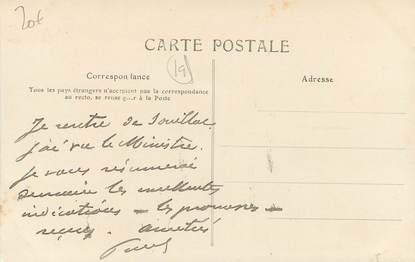 20€
CARTE POSTALE
19
Correspondance
Adresse
Tous les pays étrangers n'acceptent pas la correspondance
au recto, se renseigner à la Poste
Je rentre de Souillac
J'ai vu le Ministre.
je vous résumerai
semaine les meilleures
indications — les promesses —
reçues. amitiés
Paul